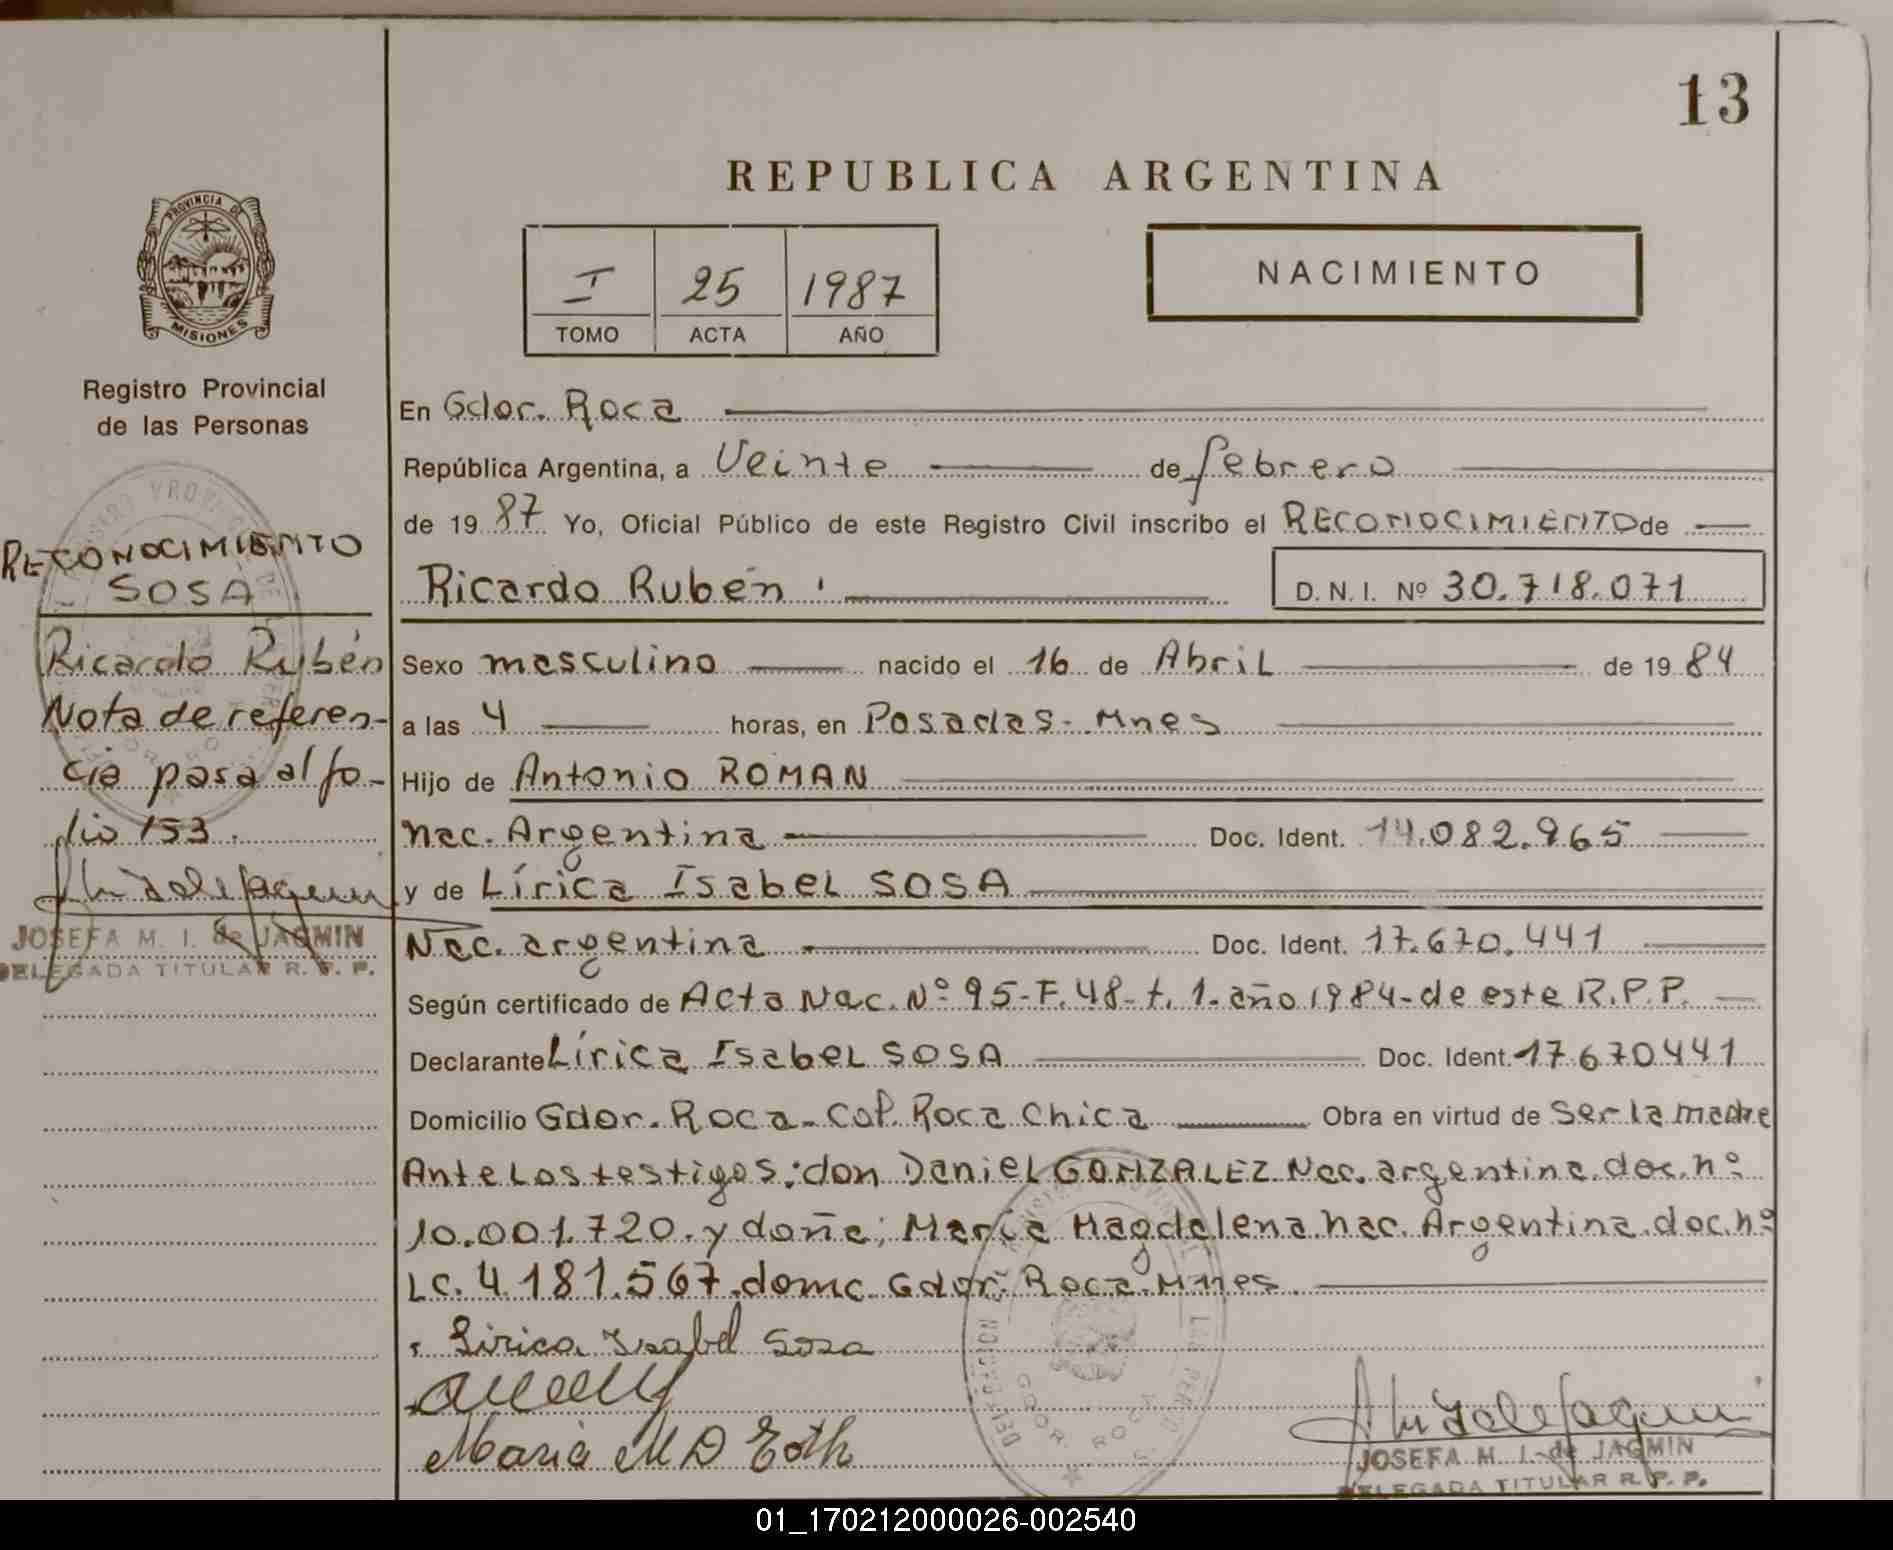 13
REPUBLICA ARGENTINA
PROVINCIA DE
MISIONES
I 25 1987
TOMO ACTA AÑO
NACIMIENTO
Registro Provincial
de las Personas
RECONOCIMIENTO
SOSA
Ricardo Rubén
Nota de referen-
cia pasa al fo-
lio 153.
JOSEFA M. I. de JAGMIN
DELEGADA TITULAR R. P. P.
En Gdor. Roca
República Argentina, a Veinte de febrero
de 19 87 Yo, Oficial Público de este Registro Civil inscribo el RECONOCIMIENTO de
Ricardo Rubén D. N. I. Nº 30.718.071
Sexo masculino nacido el 16 de Abril de 19 84
a las 4 horas, en Posadas-Mnes
Hijo de Antonio ROMAN
Nac. Argentina Doc. Ident. 14.082.965
y de Lírica Isabel SOSA
Nac. argentina Doc. Ident. 17.670.441
Según certificado de Acta Nac. Nº 95-F.48-t.1-año 1984-de este R.P.P.
Declarante Lírica Isabel SOSA Doc. Ident. 17670441
Domicilio Gdor. Roca-Col. Roca Chica Obra en virtud de Ser la madre
Ante Los testigos: don Daniel GONZALEZ Nac. argentina. doc. nº
10.001.720. y doña; María Magdalena. nac. Argentina. doc. nº
LC. 4.181.567. domc. Gdor. Roca. Mnes.
Lirica Isabel Sosa
Maria M D Eoth
JOSEFA M. I. de JAGMIN
DELEGADA TITULAR R. P. P.
01_170212000026-002540